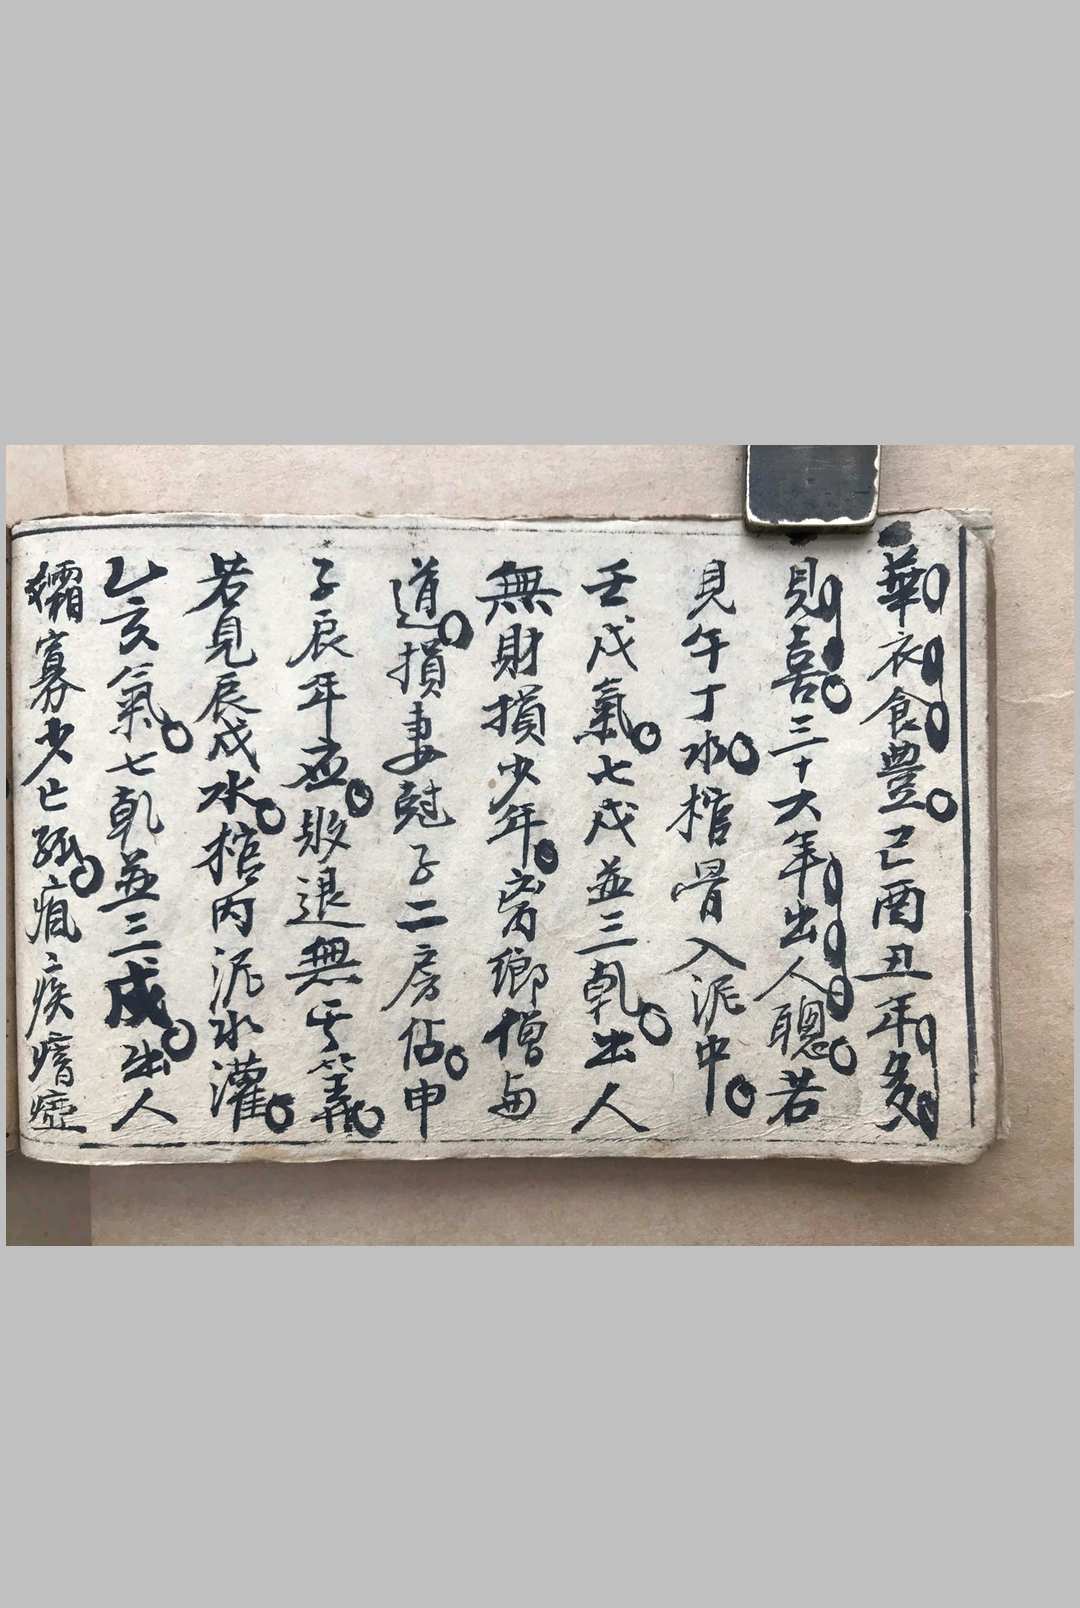 華衣食豊己酉丑年多
見喜三十六年出人聰若
見午丁水棺骨入泥中
壬戌氣七戌並三乹出人
無財損少年离鄉憎與
道損妻尅子二房佔申
子辰年应敗退無其筭
若見辰戌水棺內泥水灌
乙亥氣七乹並三戌出人
孀寡少亡孤疾瘖